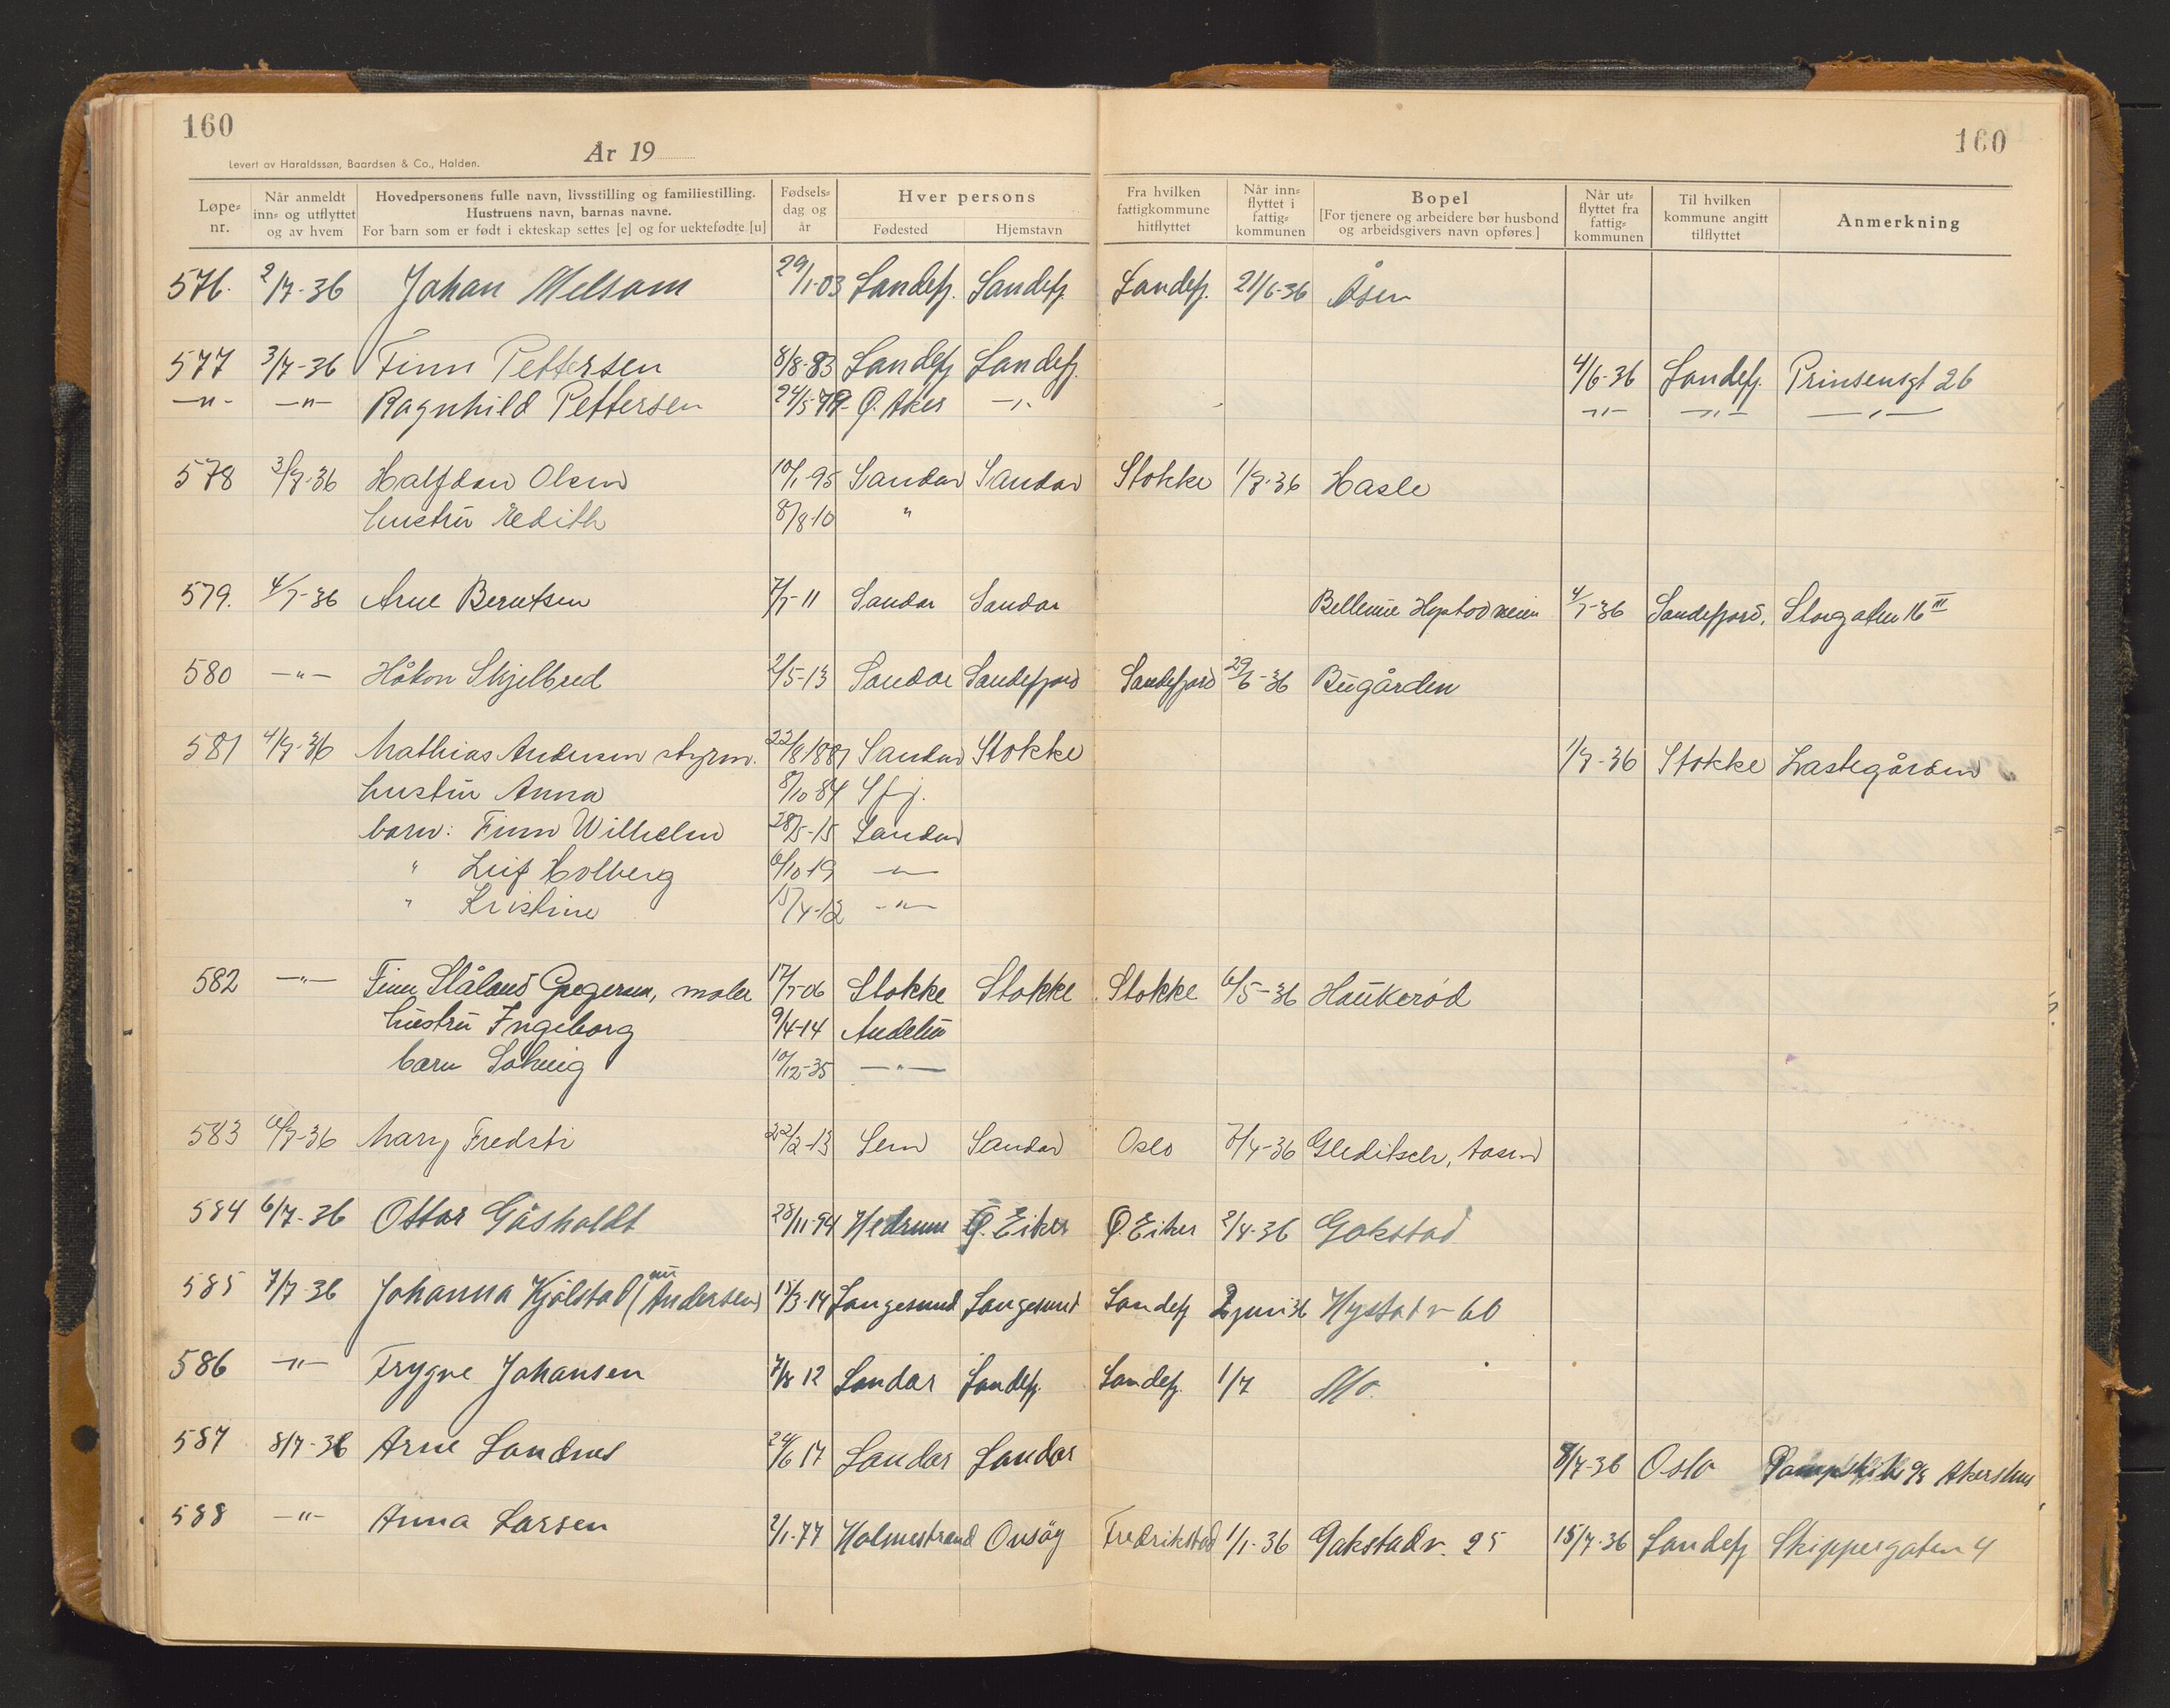 160
160
Levert av Haraldssøn, Baardsen & Co., Halden.
År 19
Løpe-nr.
Når anmeldt inn- og utflyttet og av hvem
Hovedpersonens fulle navn, livsstilling og familiestilling.
Hustruens navn, barnas navne.
For barn som er født i ekteskap settes [e] og for uektefødte [u]
Fødsels-dag og år
Hver persons
Fødested
Hjemstavn
Fra hvilken fattigkommune hitflyttet
Når inn-flyttet i fattig-kommunen
Bopel
[For tjenere og arbeidere bør husbond og arbeidsgivers navn opføres.]
Når ut-flyttet fra fattig-kommunen
Til hvilken kommune angitt tilflyttet
Anmerkning
576. 2/7-36 Johan Melsom 29/1-03 Sandefj. Sandefj. Sandefj. 21/6-36 Åsen
577 3/7-36 Finn Pettersen 8/8-83 Sandefj Sandefj. 4/6-36 Sandefj. Prinsensgt 26
—"— —"— Ragnhild Pettersen 24/5-79 Ø. Aker —"— —"— —"— —"—
578 3/7-36 Halfdan Olsen 10/1-95 Sandar Sandar Stokke 1/7-36 Hasle
hustru Edith 8/8-10 "
579. 4/7-36 Arne Berntsen 7/7-11 Sandar Sandar Bellevue Hystadveien 4/7-36 Sandefjord, Storgaten 16 III
580 —"— Håkon Skjelbred 2/5-13 Sandar Sandefjord Sandefjord 29/6-36 Bugården
581 4/7-36 Mathias Andersen styrm. 22/8 1881 Sandar Stokke 1/7-36 Stokke
hustru Anna 8/10-84 Sfj.
barn: Finn Wilhelm 28/5-15 Sandar
" Leif Holberg 6/10-19 —"—
" Kristine 15/4-12 —"—
582 —"— Finn Ståland Gregersen, maler 17/7-06 Stokke Stokke Stokke 6/5-36 Haukerød
hustru Ingeborg 9/4-14 Andebu
barn Solveig 10/12-35 —"—
583 6/7-36 Mary Fredsti 22/2-13 Sem Sandar Oslo 7/4-36 Gleditsch, Aasen
584 6/7-36 Ottar Gåsholdt 28/11-94 Hedrum Ø. Eiker Ø. Eiker 2/4-36 Gokstad
585 7/7-36 Johanna Kjølstad (nu Andersen) 15/3-14 Langesund Langesund Sandefj 2 juni 36 Hystadv 60
586 —"— Trygve Johansen 7/8 12 Sandar Sandefj. Sandefj. 1/7 Mo.
587 8/7-36 Arne Sandnes 24/6 17 Sandar Sandar 8/7-36 Oslo Akershus
588 —"— Anna Larsen 2/1-77 Holmestrand Onsøy Fredrikstad 1/1-36 Gokstadv. 25 15/7-36 Sandefj Skippergaten 4